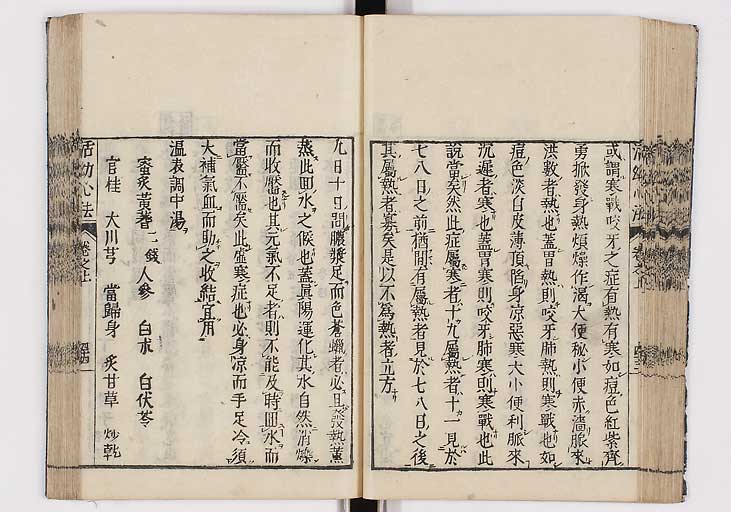 或謂寒戰咬牙之症有熱有寒如痘色紅紫齊
勇掀發身熱煩燥作渴大便秘小便赤濇脈來
洪數者熱也蓋胃熱則咬牙肺熱則寒戰也如
痘色淡白皮薄頂陷身凉惡寒大小便利脈來
沉遲者寒也蓋胃寒則咬牙肺寒則寒戰也此
說當矣然此症屬寒者十九屬熱者十一見於
七八日之前猶間有屬熱者見於七八日之後
其屬熱者寡矣是以不爲熱者立方
活幼心法 卷之上
九日十日間膿漿足而色蒼蠟者必且發熱薰
蒸此回水之候也蓋眞陽運化其水自然消爍
而收靨也其元氣不足者則不能及時回水而
當靨不靨矣此虛寒症也必身凉而手足冷須
大補氣血而助之收結宜用
溫表調中湯
蜜炙黃蓍二錢 人參 白朮 白伏苓
官桂 大川芎 當歸身 炙甘草 炒乾
活幼心法 卷之上